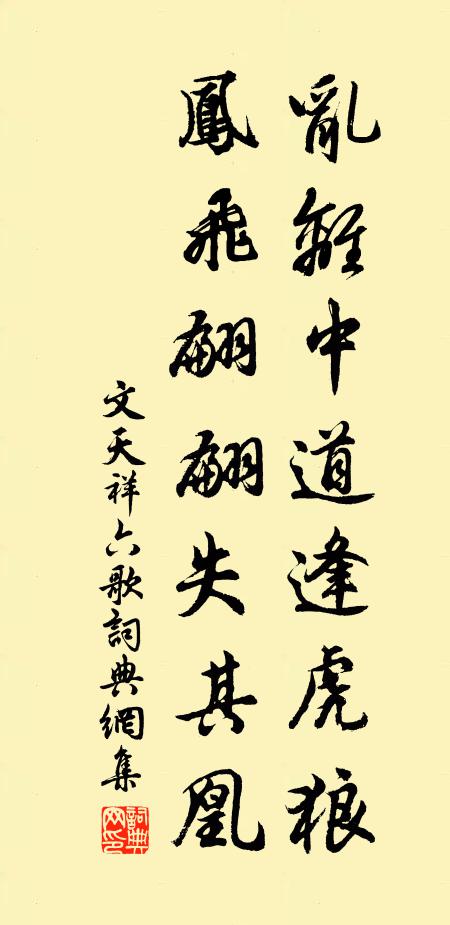 亂離中道逢虎狼
鳳飛翩翩失其凰
文天祥六歌詞典網集
詞典网印